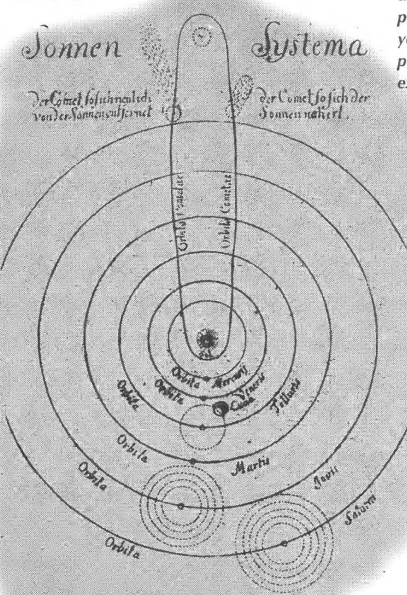 Sonnen Systema
der Comet so sich neulich
von der Sonnen entfernet
der Comet so sich der
Sonnen nähert.
Orbita Cometae
Orbita Cometae
Orbita Mercurij
Orbita Veneris
Luna
Orbita Telluris
Orbita Martis
Orbita Jovis
Orbita Saturni
p
y
p
e